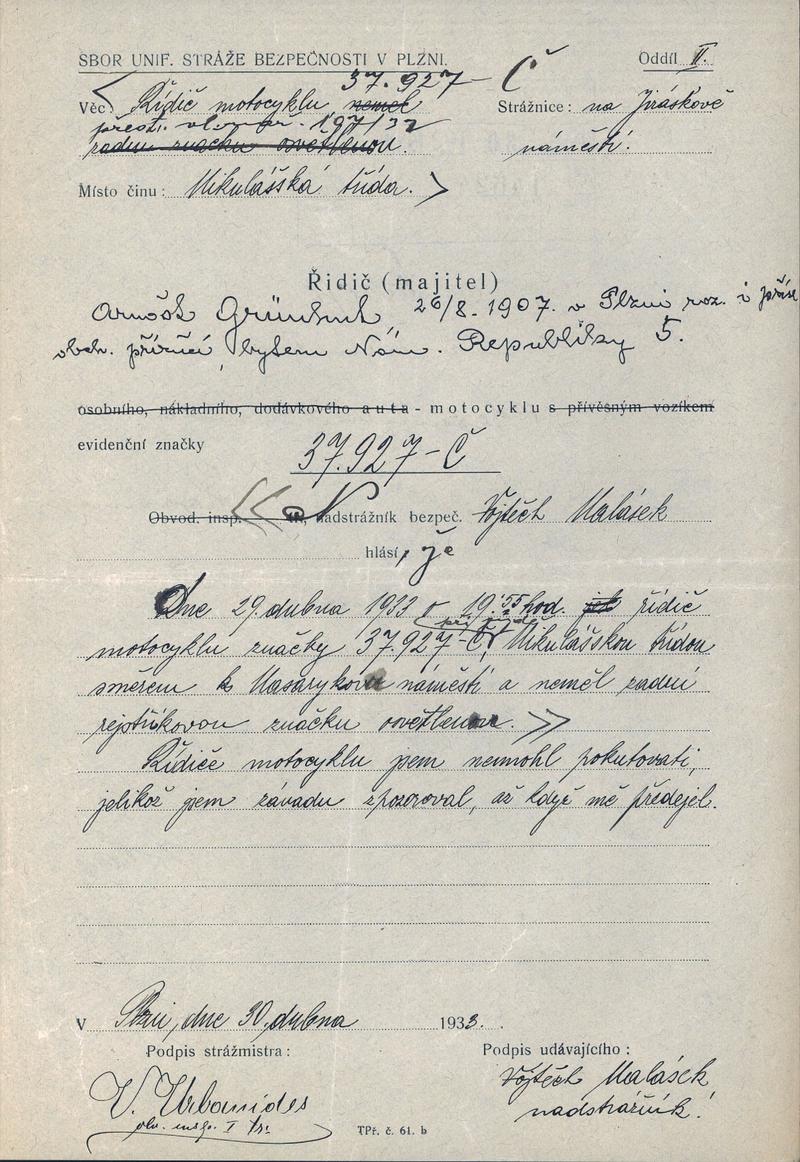 SBOR UNIF. STRÁŽE BEZPEČNOSTI V PLZNI. Oddíl II.
37.927-Č
Věc: Řidič motocyklu neměl Strážnice: na Jiráskově
přest. vl. nař. 197/32
zadní značku osvětlenou. náměstí.
Místo činu: Mikulášská třída.
Řidič (majitel)
Arnošt 26/8. 1907. v Plzni nar. i přísl.
obch. příručí, bytem Nám. Republiky 5.
osobního, nákladního, dodávkového auta - motocyklu s přívěsným vozíkem
evidenční značky
37.927-Č
Obvod. insp. nadstrážník bezpeč. Vojtěch Malásek
hlásí, že
Dne 29. dubna 1933 o 19.55 hod. jel řidič
při jízdě
motocyklu značky 37.927-Č, Mikulášskou třídou
směrem k Masarykovu náměstí a neměl zadní
rejstříkovou značku osvětlenou.
Řidiče motocyklu jsem nemohl pokutovati,
jelikož jsem závadu zpozoroval, až když mě předejel.
V Plzni, dne 30. dubna 1933.
Podpis strážmistra: Podpis udávajícího:
V. Urbanides Vojtěch Malásek
obv. insp. I. tř. nadstrážník!
TPř. č. 61. b